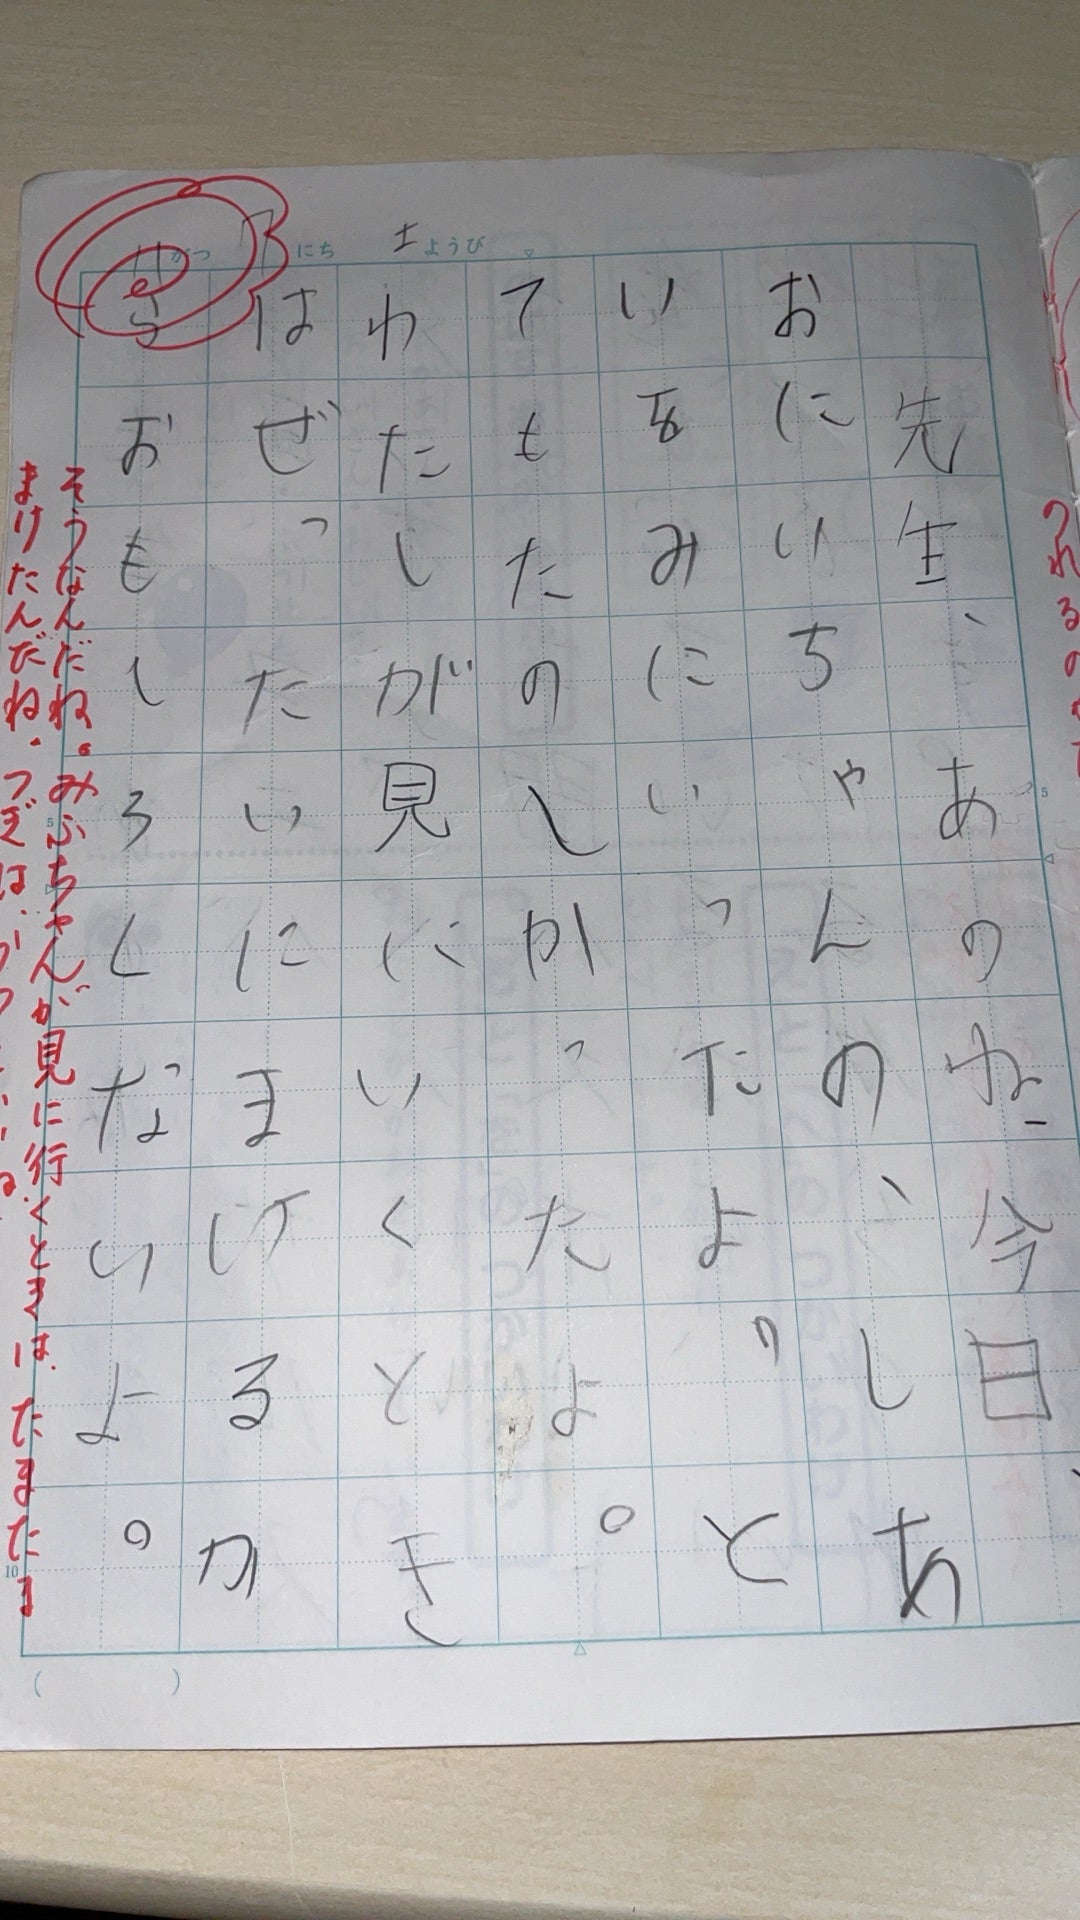 11がつ にち 土ようび
先生、あのね今日、
おにいちゃんの、しあ
いをみにいったよ。と
てもたのしかったよ。
わたしが見にいくとき
はぜったいにまけるか
らおもしろくないよ。
そうなんだね。みふちゃんが見に行くときは、たまたま
まけたんだね。つぎは、
5
5
10
(　　)